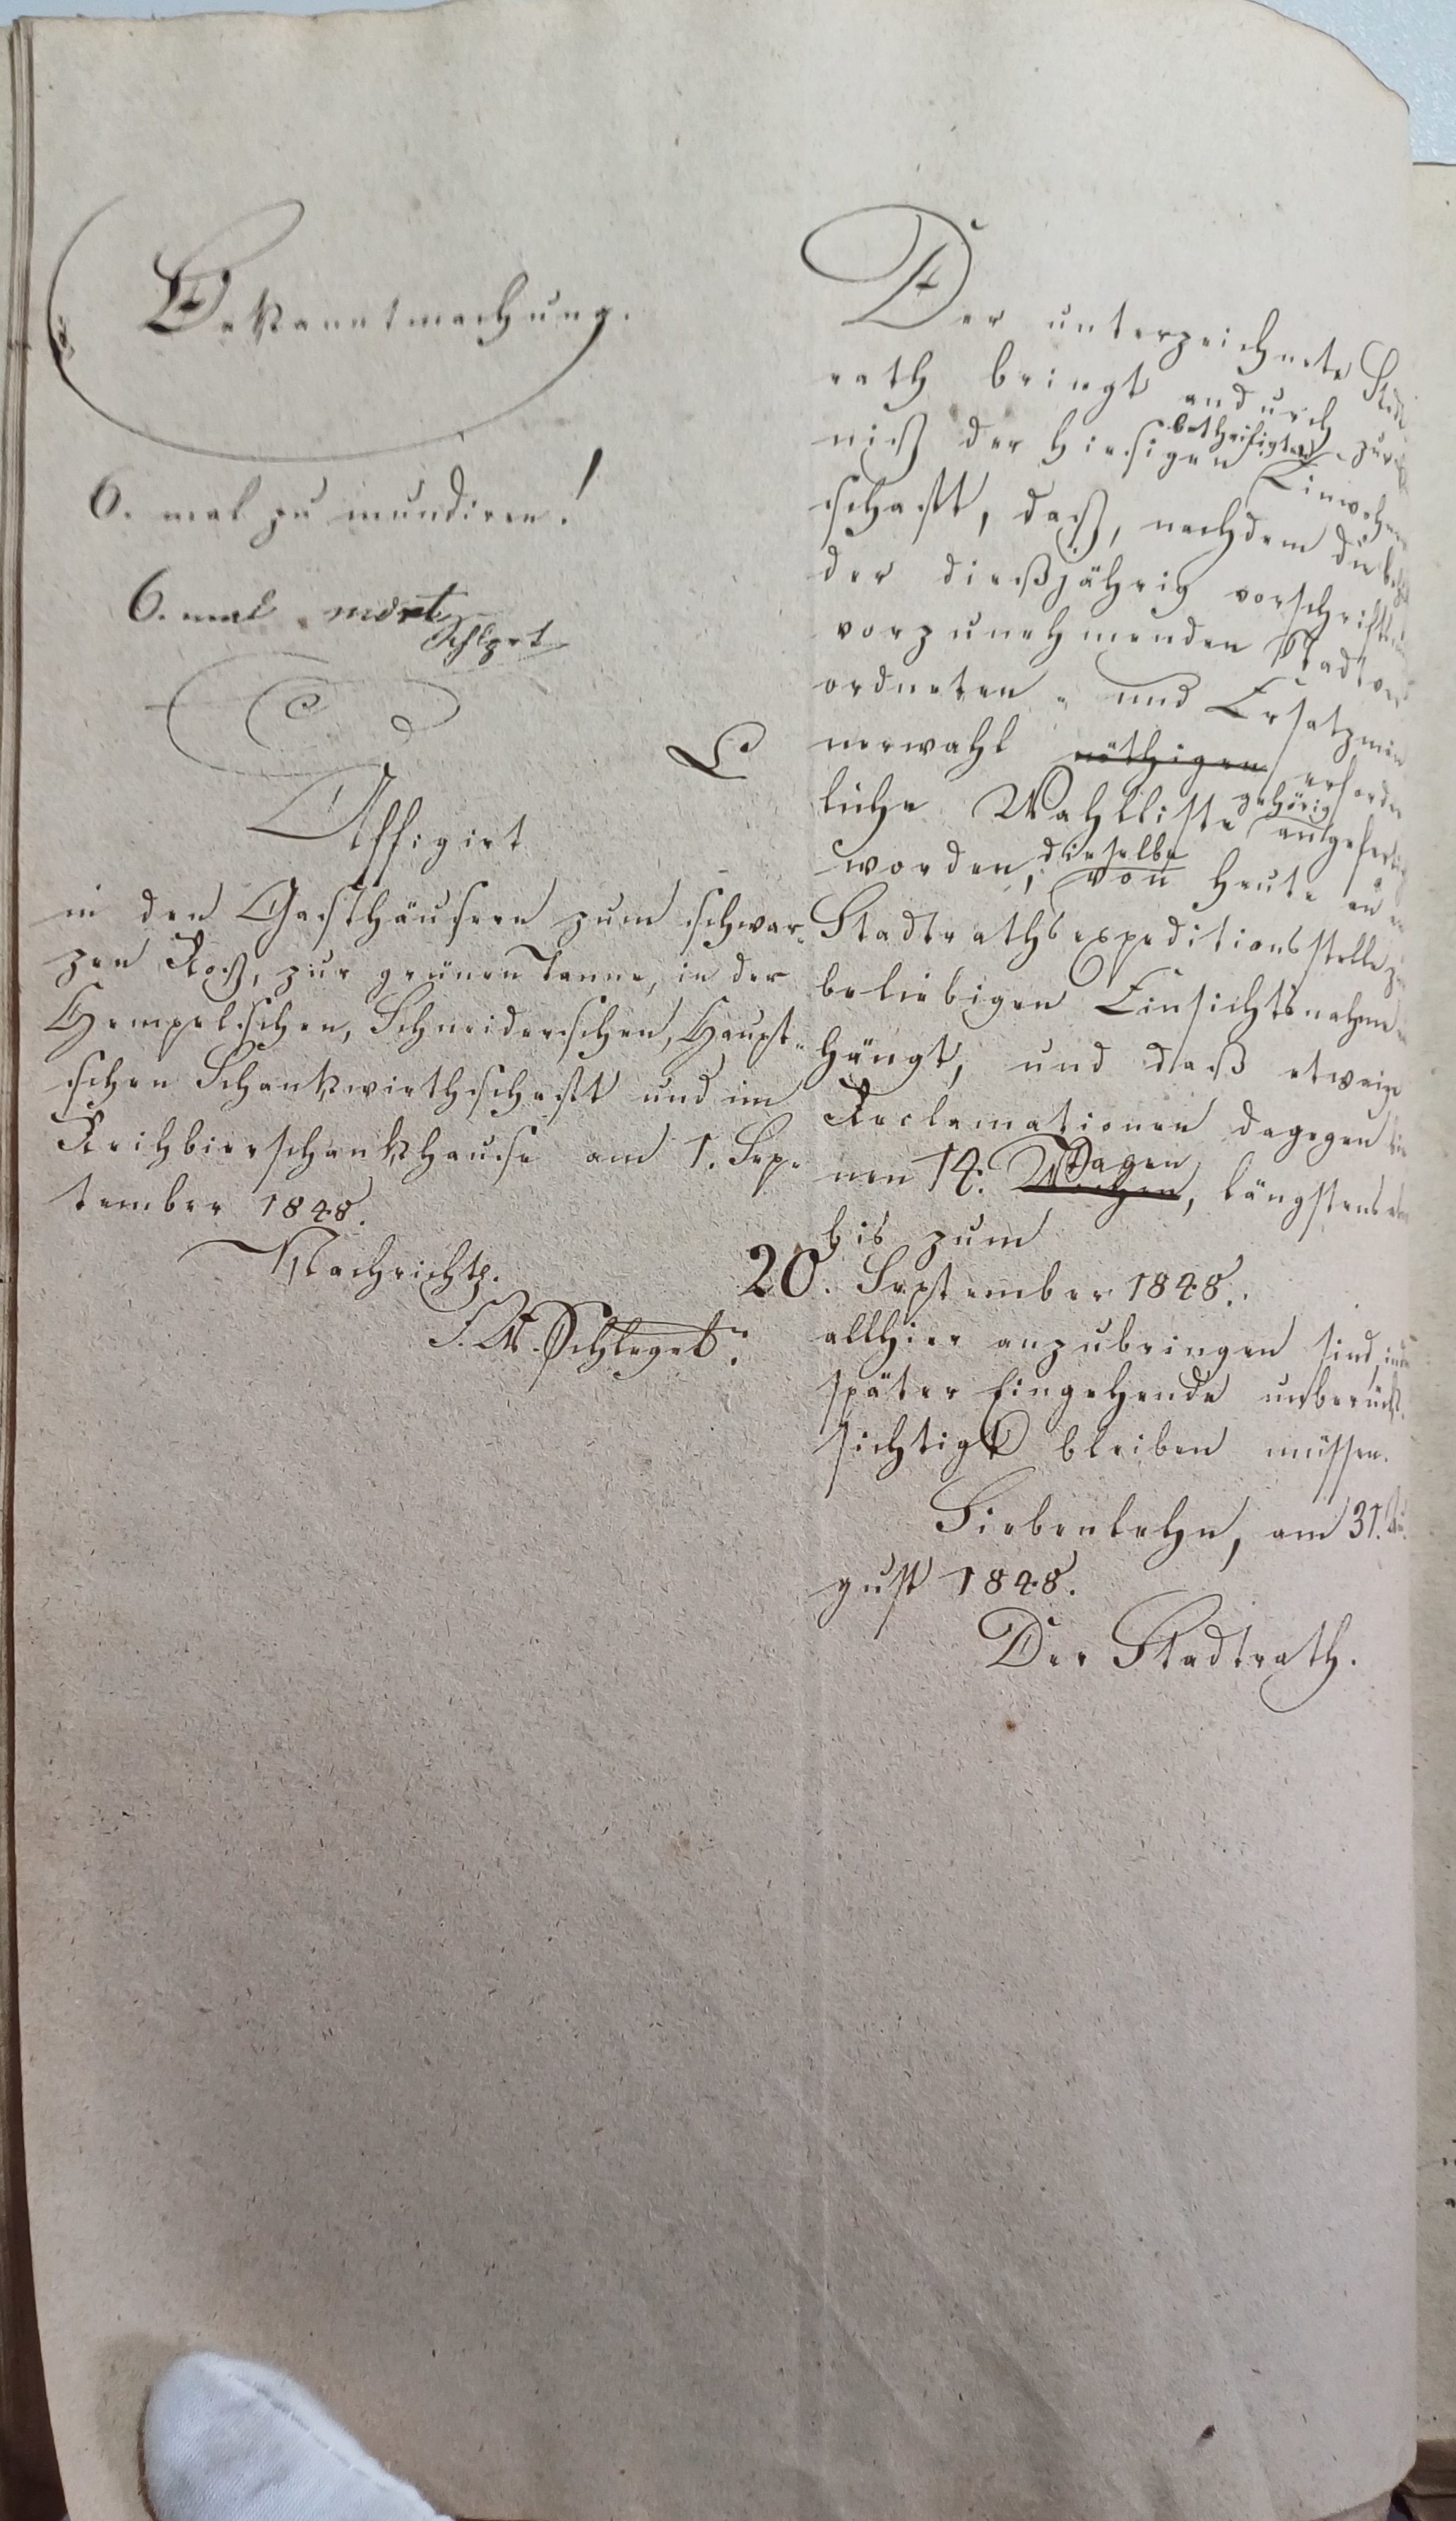 Bekanntmachung.
6. mal zu mundiren!
6. mal mdrt
Schlgrt
Affigirt
in den Gasthäusern zum schwar-
zen Roß, zur grünen Tanne, in der
Hempelschen, Schneiderschen, Haupt-
schen Schankwirthschaft und im
Reihbierschankhause am 1. Sep-
tember 1848.
Nachrichtl.
F. W. Schlegel.
Der unterzeichnete Stadt
rath bringt andurch zur
niß der hiesigen betheiligten Einwohner
schaft, daß, nachdem die
der dießjährig vorschrift
vorzunehmenden Stadtver
ordneten- und Ersatzmän
nerwahl nöthigen erforder
liche Wahlliste gehörig angefertigt
worden, dieselbe von heute an
Stadtrathsexpeditionsstelle zu
beliebigen Einsichtsnahme
hängt, und daß etwaige
Reclamationen dagegen bin
nen 14. Wochen Tagen, längstens aber
bis zum
20. September 1848.
allhier anzubringen sind, indem
später Eingehende unberück-
sichtigt bleiben müssen.
Siebenlehn, am 31. Au-
gust 1848.
Der Stadtrath.